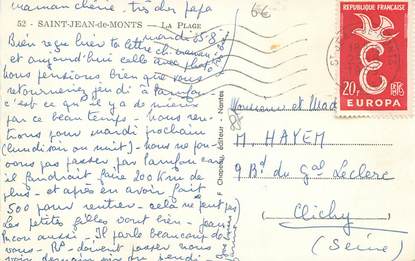 maman chérie - très cher papa
52 - SAINT-JEAN-de-MONTS — LA PLAGE
6€
mardi 5-8
Bien reçu hier ta lettre ch. maman
et aujourd'hui celle avec photo
nous pensions bien que vous
retourneriez jeudi à
c'est ce qu'il y a de mieux
par ce beau temps - nous ren-
trons pour mardi prochain
(lundi soir ou nuit) - nous ne pou-
vons pas passer par
il faudrait faire 200 Km de
plus - et après en avoir fait
500 pour rentrer - cela ne
Les petites filles vont bien - Jean
aussi - Il parle beaucoup de
vous - doivent passer nous
voir demain soir ou jeudi -
F Chapeau, Éditeur - Nantes
REPUBLIQUE FRANÇAISE
20F
POSTES
EUROPA
Monsieur et Mad
M. HAYEM
9 Bd du Gal Leclerc
Clichy
(Seine)